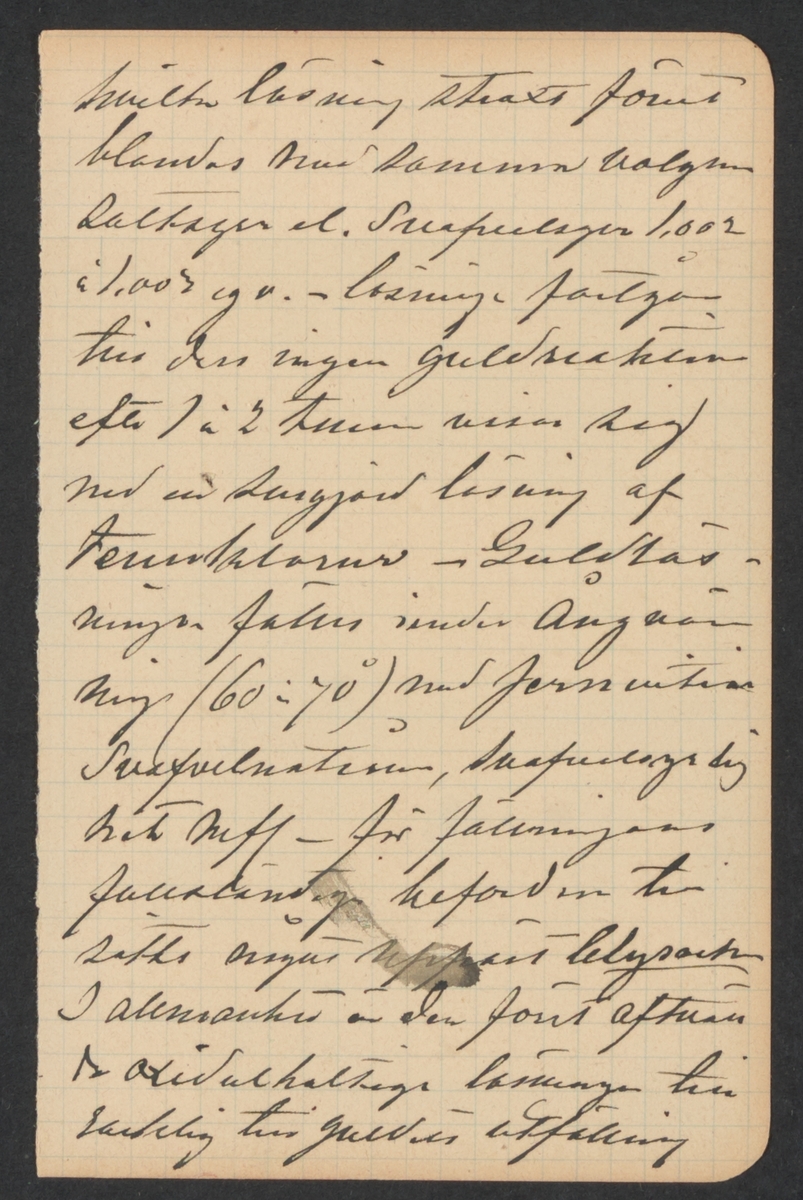 hvilken lösning straxt förut
blandas med samma volym
Saltsyra el. Svafvelsyra 1,002
à 1,003 eg v. – lösninge fortgår
till dess ingen guldreaktion
efter 1 à 2 timm visar sig
med en surgjord lösning af
Tennklorur – Guldlös-
ningen fälles under Ångvärm
ning (60 à 70°) med Jernvitriol
Svafvelnatrium, Svafvelsyrlig
het – för fällningens
fullständige befordran till
sätts något upplöst blysocker
I allmänhet är den först aftnar
de oxidulhaltige lösningen till
räcklig till guldets utfällning